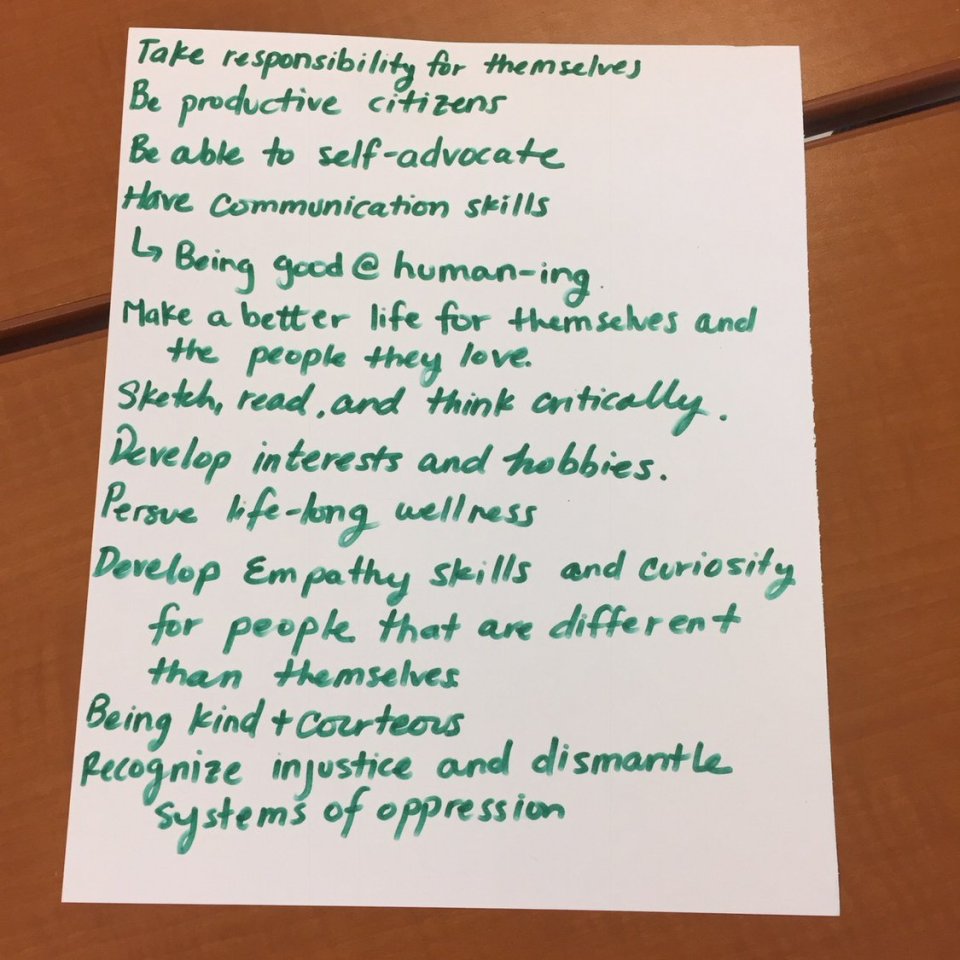 Take responsibility for themselves
Be productive citizens
Be able to self-advocate
Have communication skills
↳ Being good @ human-ing.
Make a better life for themselves and
the people they love.
Sketch, read, and think critically.
Develop interests and hobbies.
Persue life-long wellness
Develop Empathy skills and curiosity
for people that are different
than themselves.
Being kind + courteous
Recognize injustice and dismantle
systems of oppression